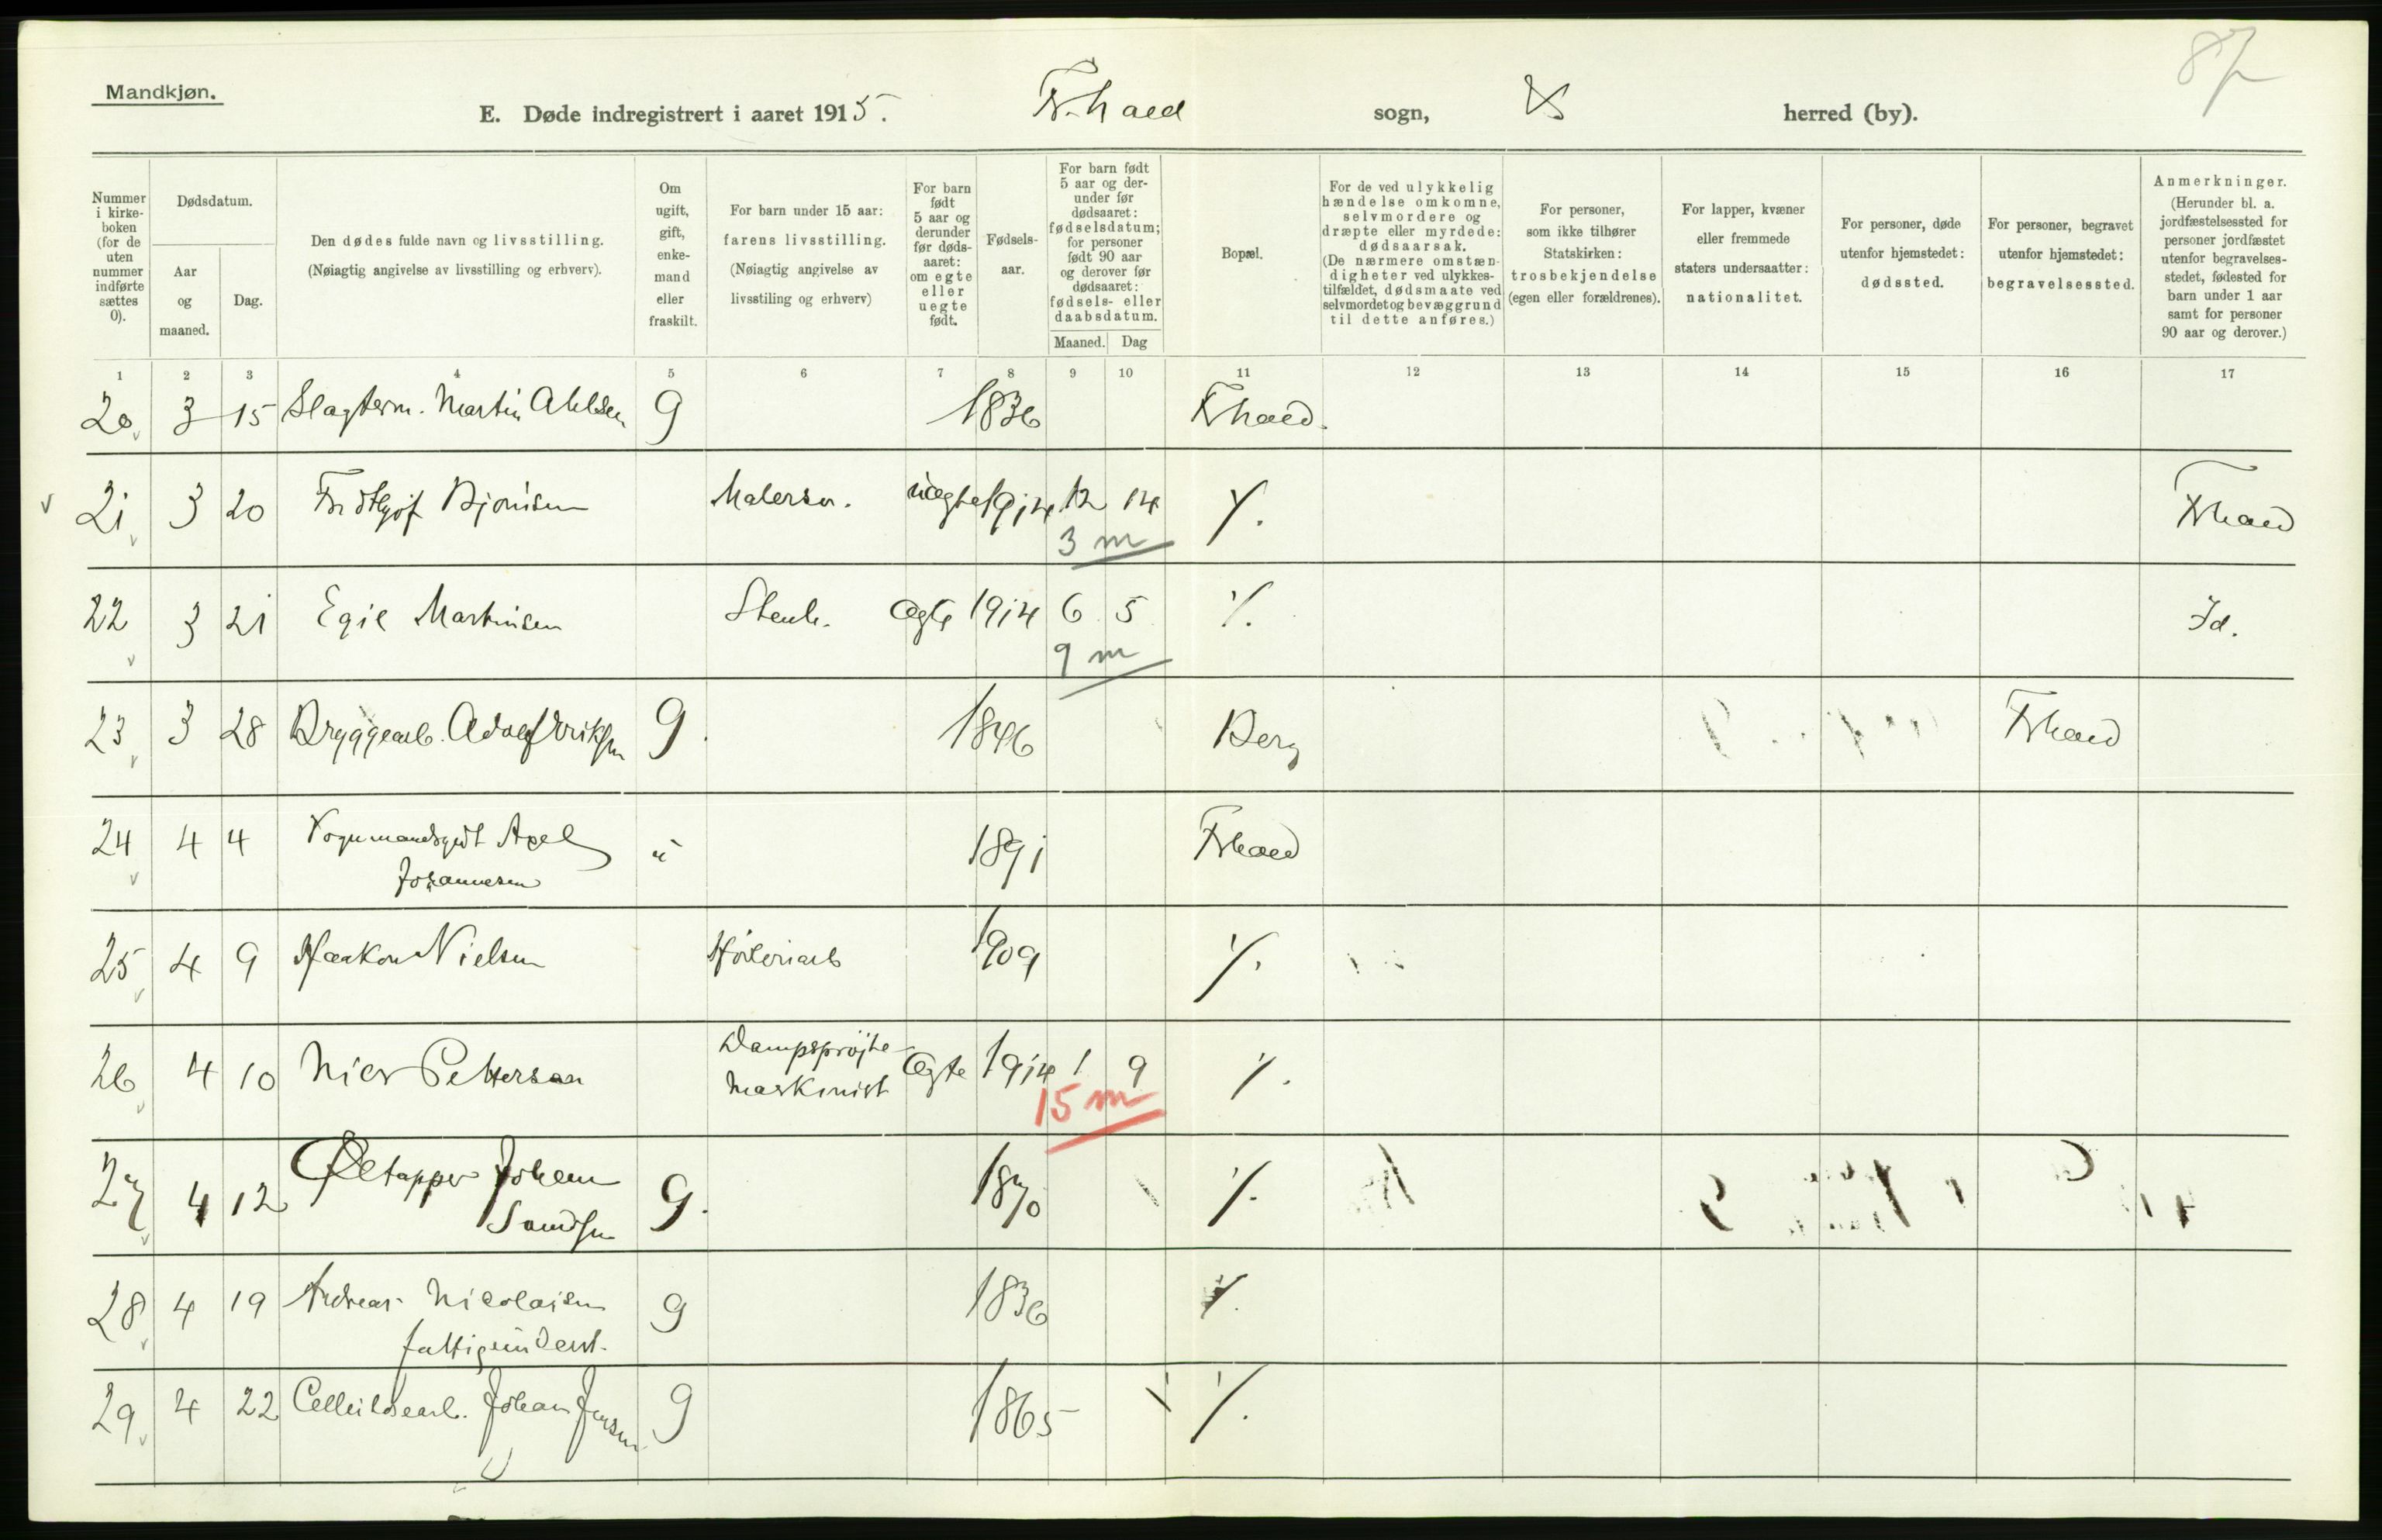 87
Mandkjøn.
E. Døde indregistrert i aaret 1915. Fr.hald sogn, herred (by).
Nummer i kirkeboken (for de uten nummer indførte sættes 0).
Dødsdatum.
Aar og maaned.
Dag.
Den dødes fulde navn og livsstilling. (Nøiagtig angivelse av livsstilling og erhverv).
Om ugift, gift, enkemand eller fraskilt.
For barn under 15 aar: farens livsstilling. (Nøiagtig angivelse av livsstiling og erhverv)
For barn født 5 aar og derunder før dødsaaret: om egte eller uegte født.
Fødselsaar.
For barn født 5 aar og derunder før dødsaaret: fødselsdatum; for personer født 90 aar og derover før dødsaaret: fødsels- eller daabsdatum.
Maaned. Dag
Bopæl.
For de ved ulykkelig hændelse omkomne, selvmordere og dræpte eller myrdede: dødsaarsak. (De nærmere omstændigheter ved ulykkestilfældet, dødsmaate ved selvmordet og bevæggrund til dette anføres.)
For personer, som ikke tilhører Statskirken: trosbekjendelse (egen eller forældrenes).
For lapper, kvæner eller fremmede staters undersaatter: nationalitet.
For personer, døde utenfor hjemstedet: dødssted.
For personer, begravet utenfor hjemstedet: begravelsessted.
Anmerkninger. (Herunder bl. a. jordfæstelsessted for personer jordfæstet utenfor begravelsesstedet, fødested for barn under 1 aar samt for personer 90 aar og derover.)
1 2 3 4 5 6 7 8 9 10 11 12 13 14 15 16 17
20 3 15 Slagterm. Martin Ahlsen g 1836 Frhald.
21 3 20 Fridtjof Bjørnsen Malersv. uægte 1914 12 14 ٪. Frhald
3 m
22 3 21 Egil Martinsen Stenh. ægte 1914 6 5 ٪. Id.
9 m
23 3 28 Bryggearb. Adolf Eriksen g. 1846 Berg Frhald
24 4 4 Vognmandsgut Axel u 1891 Frhald
Johannesen
25 4 9 Haakon Nielsen Høvleriarb 1909 ٪.
26 4 10 Nils Pettersen Dampsprøjte- ægte 1914 1 9 ٪.
maskinist
15 m
27 4 12 Øltapper Johan g. 1870 ٪.
Sandsen
28 4 19 Andreas Nicolaisen g 1836 ٪.
fattigunderst.
29 4 22 Cellulosearb. Johan Jensen g 1865 ٪.